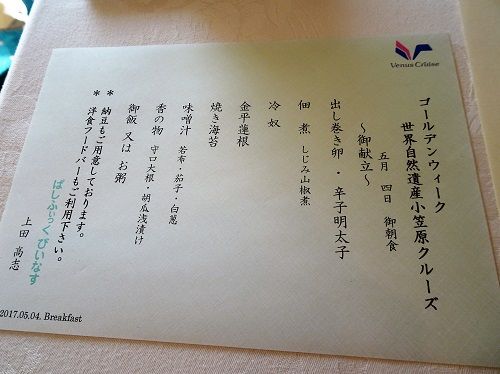 Venus Cruise
ゴールデンウィーク
世界自然遺産小笠原クルーズ
五月 四日 御朝食
～御献立～
出し巻き卵・辛子明太子
佃煮 しじみ山椒煮
冷奴
金平蓮根
焼き海苔
味噌汁 若布・茄子・白葱
香の物 守口大根・胡瓜浅漬け
御飯 又は お粥
* 納豆もご用意しております。
* 洋食フードバーもご利用下さい。
ぱしふぃっく びいなす
上田 高志
2017.05.04. Breakfast